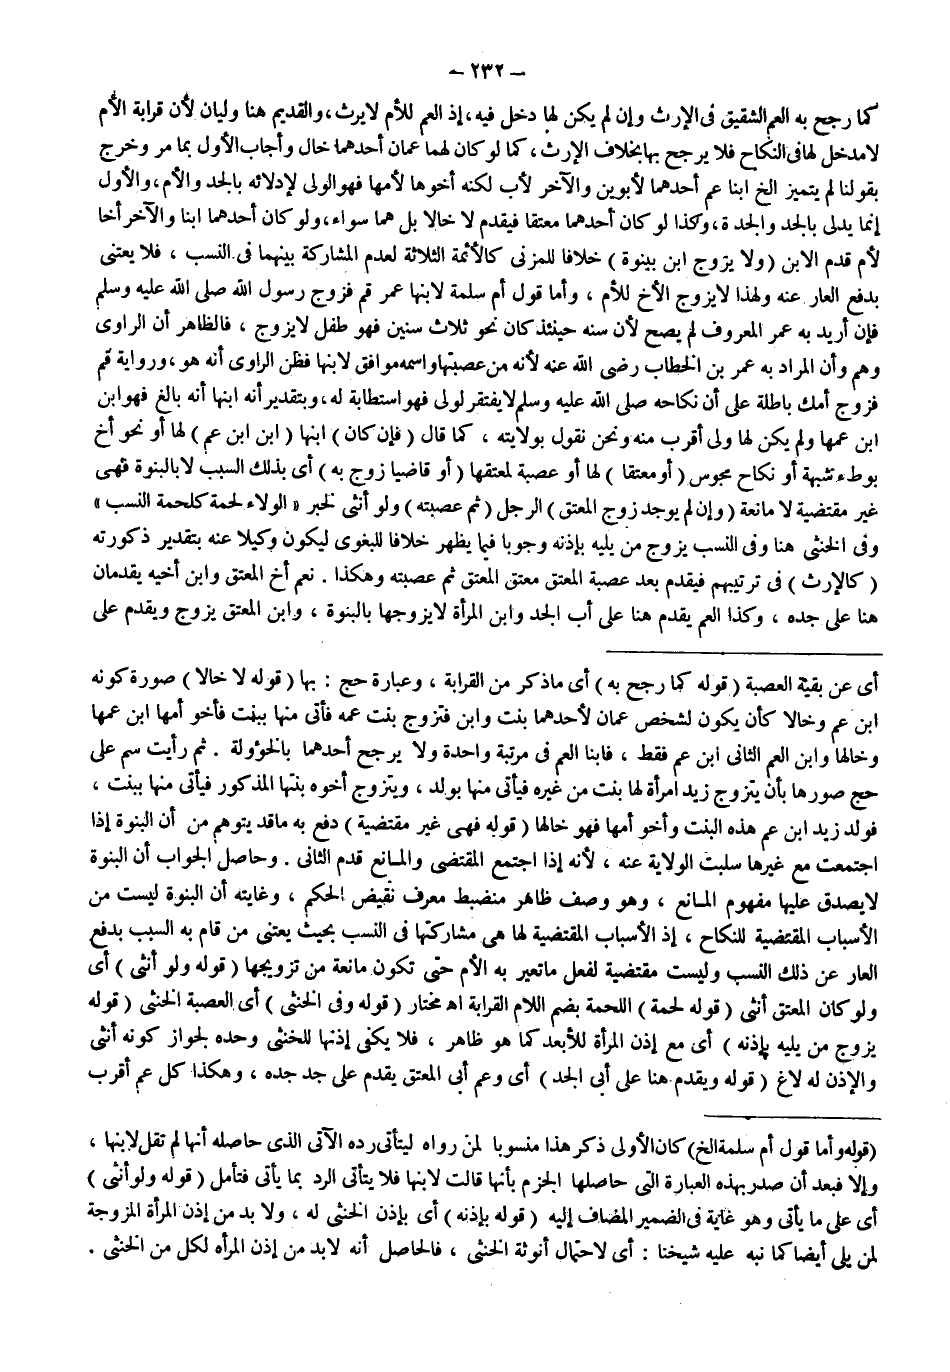 – ٢٣٢ –
كما رجح به العم الشقيق فى الإرث وإن لم يكن لها دخل فيه ، إذ العم للأم لايرث ، والقديم هنا وليان لأن قرابة الأم
لامدخل لها فى النكاح فلا يرجح بها بخلاف الإرث ، كما لو كان لهما عمان أحدهما خال وأجاب الأول بما مر وخرج
بقولنا لم يتميز الخ ابنا عم أحدهما لأبوين والآخر لأب لكنه أخوها لأمها فهو الولى لإدلائه بالجد والأم ، والأول
إنما يدلى بالجد والجدة ، وكذا لو كان أحدهما معتقا فيقدم لا خالا بل هما سواء ، ولو كان أحدهما ابنا والآخر أخا
لأم قدم الابن ( ولا يزوج ابن ببنوة ) خلافا للمزنى كالأئمة الثلاثة لعدم المشاركة بينهما فى النسب ، فلا يعتنى
بدفع العار عنه ولهذا لايزوج الأخ للأم ، وأما قول أم سلمة لابنها عمر قم فزوج رسول الله صلى الله عليه وسلم
فإن أريد به عمر المعروف لم يصح لأن سنه حينئذ كان نحو ثلاث سنين فهو طفل لايزوج ، فالظاهر أن الراوى
وهم وأن المراد به عمر بن الخطاب رضى الله عنه لأنه من عصبتها واسمه موافق لابنها فظن الراوى أنه هو ، ورواية قم
فزوج أمك باطلة على أن نكاحه صلى الله عليه وسلم لايفتقر لولى فهو استطابة له ، وبتقدير أنه ابنها أنه بالغ فهو ابن
ابن عمها ولم يكن لها ولى أقرب منه ونحن نقول بولايته ، كما قال ( فإن كان ) ابنها ( ابن ابن عم ) لها أو نحو أخ
بوطء شبهة أو نكاح مجوس ( أو معتقا ) لها أو عصبة لمعتقها ( أو قاضيا زوج به ) أى بذلك السبب لا بالبنوة فهى
غير مقتضية لا مانعة ( وإن لم يوجد زوج المعتق ) الرجل ( ثم عصبته ) ولو أنثى لخبر « الولاء لحمة كلحمة النسب »
وفى الخنثى هنا وفى النسب يزوج من يليه بإذنه وجوبا فيما يظهر خلافا للبغوى ليكون وكيلا عنه بتقدير ذكورته
( كالإرث ) فى ترتيبهم فيقدم بعد عصبة المعتق معتق المعتق ثم عصبته وهكذا . نعم أخ المعتق وابن أخيه يقدمان
هنا على جده ، وكذا العم يقدم هنا على أب الجد وابن المرأة لايزوجها بالبنوة ، وابن المعتق يزوج ويقدم على
أى عن بقية العصبة ( قوله كما رجح به ) أى ماذكر من القرابة ، وعبارة حج : بها ( قوله لا خالا ) صورة كونه
ابن عم وخالا كأن يكون لشخص عمان لأحدهما بنت وابن فتزوج بنت عمه فأتى منها ببنت فأخو أمها ابن عمها
وخالها وابن العم الثانى ابن عم فقط ، فابنا العم فى مرتبة واحدة ولا يرجح أحدهما بالخؤولة . ثم رأيت سم على
حج صورها بأن يتزوج زيد امرأة لها بنت من غيره فيأتى منها بولد ، ويتزوج أخوه بنتها المذكور فيأتى منها ببنت ،
فولد زيد ابن عم هذه البنت وأخو أمها فهو خالها ( قوله فهى غير مقتضية ) دفع به ماقد يتوهم من أن البنوة إذا
اجتمعت مع غيرها سلبت الولاية عنه ، لأنه إذا اجتمع المقتضى والمانع قدم الثانى . وحاصل الجواب أن البنوة
لايصدق عليها مفهوم المانع ، وهو وصف ظاهر منضبط معرف نقيض الحكم ، وغايته أن البنوة ليست من
الأسباب المقتضية للنكاح ، إذ الأسباب المقتضية لها هى مشاركتها فى النسب بحيث يعتنى من قام به السبب بدفع
العار عن ذلك النسب وليست مقتضية لفعل ماتعير به الأم حتى تكون مانعة من تزويجها ( قوله ولو أنثى ) أى
ولو كان المعتق أنثى ( قوله لحمة ) اللحمة بضم اللام القرابة اه مختار ( قوله وفى الخنثى ) أى العصبة الخنثى ( قوله
يزوج من يليه بإذنه ) أى مع إذن المرأة للأبعد كما هو ظاهر ، فلا يكفى إذنها للخنثى وحده لجواز كونه أنثى
والإذن له لاغ ( قوله ويقدم هنا على أبى الجد ) أى وعم أبى المعتق يقدم على جد جده ، وهكذا كل عم أقرب
( قوله وأما قول أم سلمة الخ ) كان الأولى ذكر هذا منسوبا لمن رواه ليتأتى رده الآتى الذى حاصله أنها لم تقل لابنها ،
وإلا فبعد أن صدر بهذه العبارة التى حاصلها الجزم بأنها قالت لابنها فلا يتأتى الرد بما يأتى فتأمل ( قوله ولو أنثى )
أى على ما يأتى وهو غاية فى الضمير المضاف إليه ( قوله بإذنه ) أى بإذن الخنثى له ، ولا بد من إذن المرأة المزوجة
لمن يلى أيضا كما نبه عليه شيخنا : أى لاحتمال أنوثة الخنثى ، فالحاصل أنه لابد من إذن المرأه لكل من الخنثى .